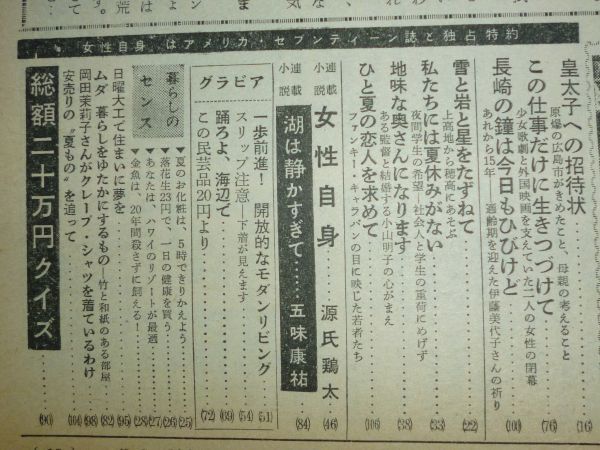 女性自身 はアメリカ セブンティーン誌と独占特約
皇太子への招待状
原爆の広島市がきめたこと、母親の考えること
(16)
この仕事だけに生きつづけて
少女歌劇と外国映画を支えていた二人の女性の閉幕
(76)
長崎の鐘は今日もひびけど
あれから15年 適齢期を迎えた伊藤美代子さんの祈り
(100)
雪と岩と星をたずねて
上高地から穂高にあそぶ
(22)
私たちには夏休みがない
夜間学生の希望―社会人と学生の重荷にめげず
(33)
地味な奥さんになります
ある監督と結婚する小山明子の心がまえ
(38)
ひと夏の恋人を求めて
ファンキー・キャラバンの目に映じた若者たち
(106)
連載小説 女性自身 源氏鶏太 (46)
連載小説 湖は静かすぎて…… 五味康祐 (84)
グラビア
一歩前進! 開放的なモダンリビング (51)
スリップ注意―下着が見えます (54)
踊ろよ、海辺で (69)
この民芸品20円より (72)
暮らしのセンス
▼夏のお化粧は、5時できりかえよう (25)
▼落花生23円で、一日の健康を買う (26)
▼あなたは、ハワイのリゾートが最適 (27)
▼金魚は、20年間殺さずに飼える! (28)
日曜大工で住まいに夢を (95)
ムダ 暮らしをゆたかにするもの―竹と和紙のある部屋 (82)
岡田茉莉子さんがクレープ・シャツを着ているわけ (98)
安売りの〝夏もの〟を追って (104)
総額 二十万円クイズ (90)